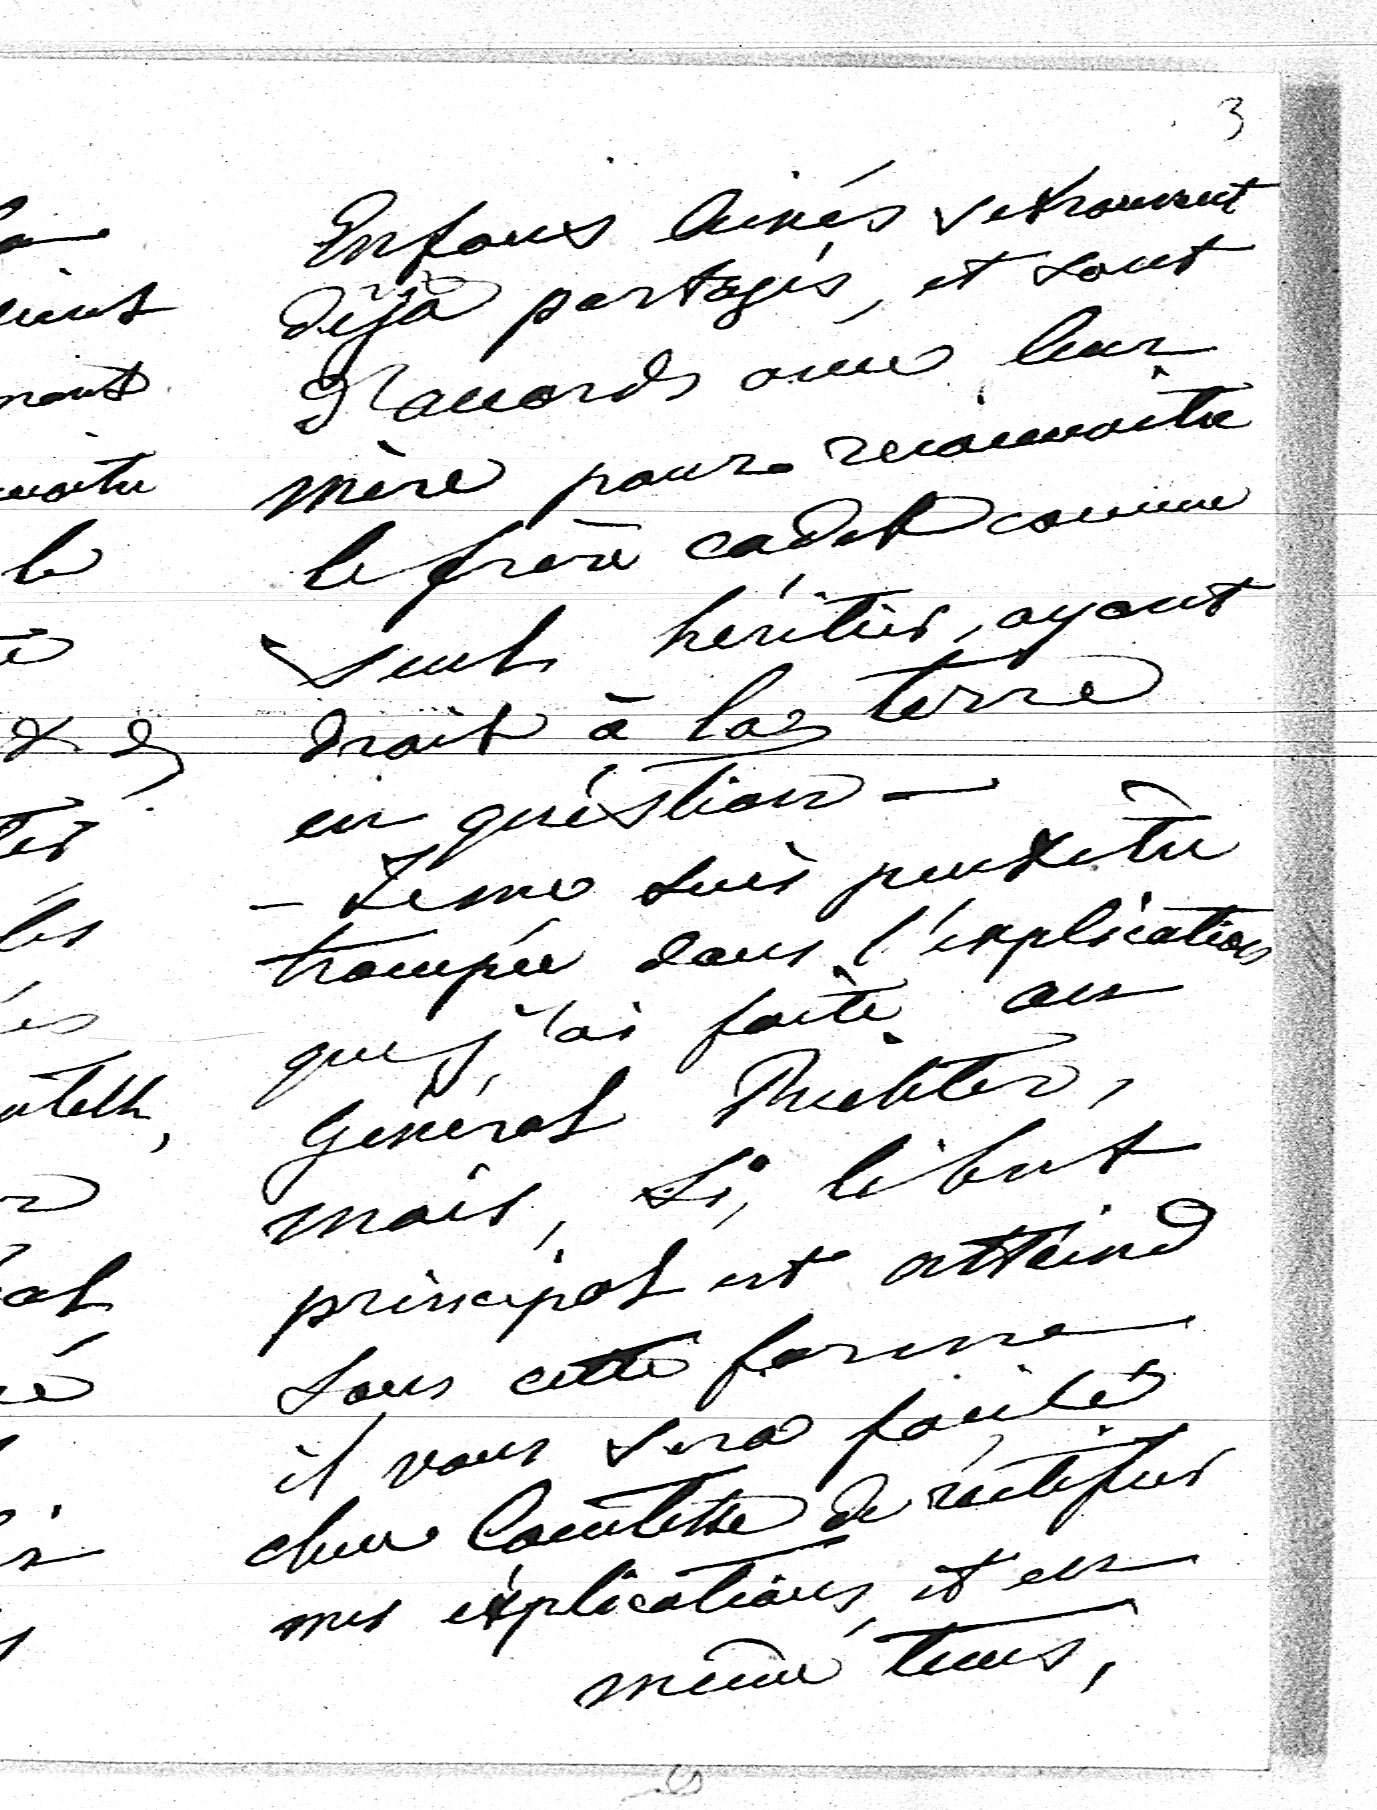 3
Enfans ainés se trouvent
déjà partagés, et sont
d'accords avec leur
mère pour reconnaitre
le frère cadet comme
seul héritier, ayant
droit à la terre
en question —
— Je me suis peut etre
trompée dans l'explication
que j'ai faite au
Général Richter,
mais, si, le but
principal est atteind
sous cette forme
il vous sera facile
cher Comtesse de rectifier
mes explications, et en
même tems,